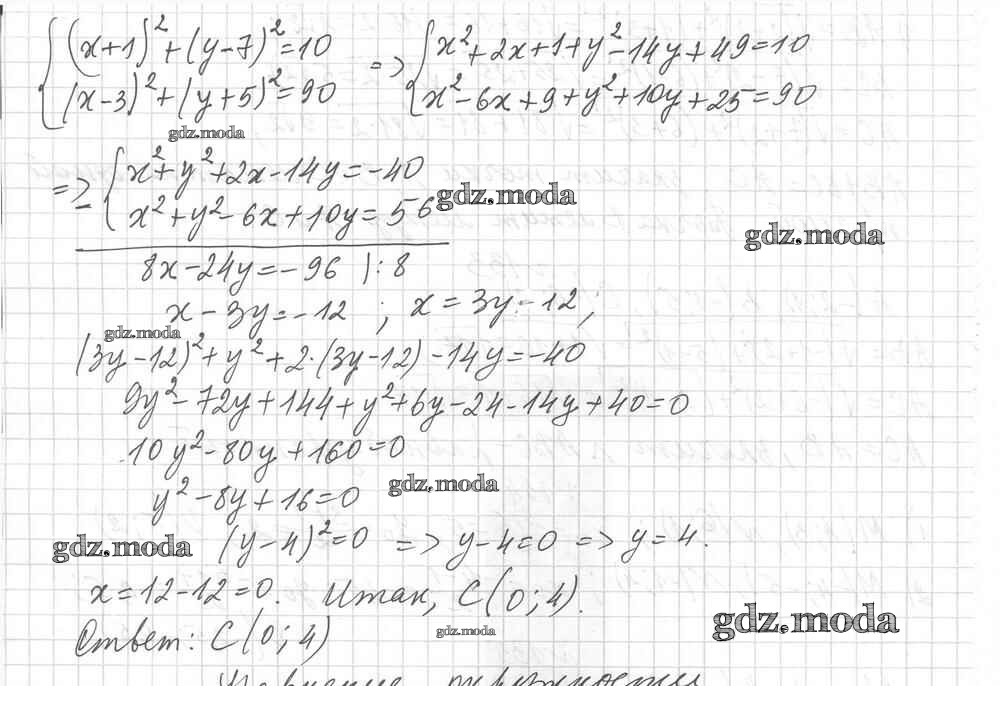 {(x+1)²+(y-7)²=10 => {x²+2x+1+y²-14y+49=10
{(x-3)²+(y+5)²=90 {x²-6x+9+y²+10y+25=90
gdz.moda
=> {x²+y²+2x-14y=-40
- {x²+y²-6x+10y=56
gdz.moda
gdz.moda
8x-24y=-96 |:8
x-3y=-12 ; x=3y-12;
gdz.moda
(3y-12)²+y²+2·(3y-12)-14y=-40
9y²-72y+144+y²+6y-24-14y+40=0
10y²-80y+160=0
y²-8y+16=0
gdz.moda
gdz.moda
(y-4)²=0 => y-4=0 => y=4.
x=12-12=0. Итак, C(0;4).
gdz.moda
gdz.moda
Ответ: C(0;4)